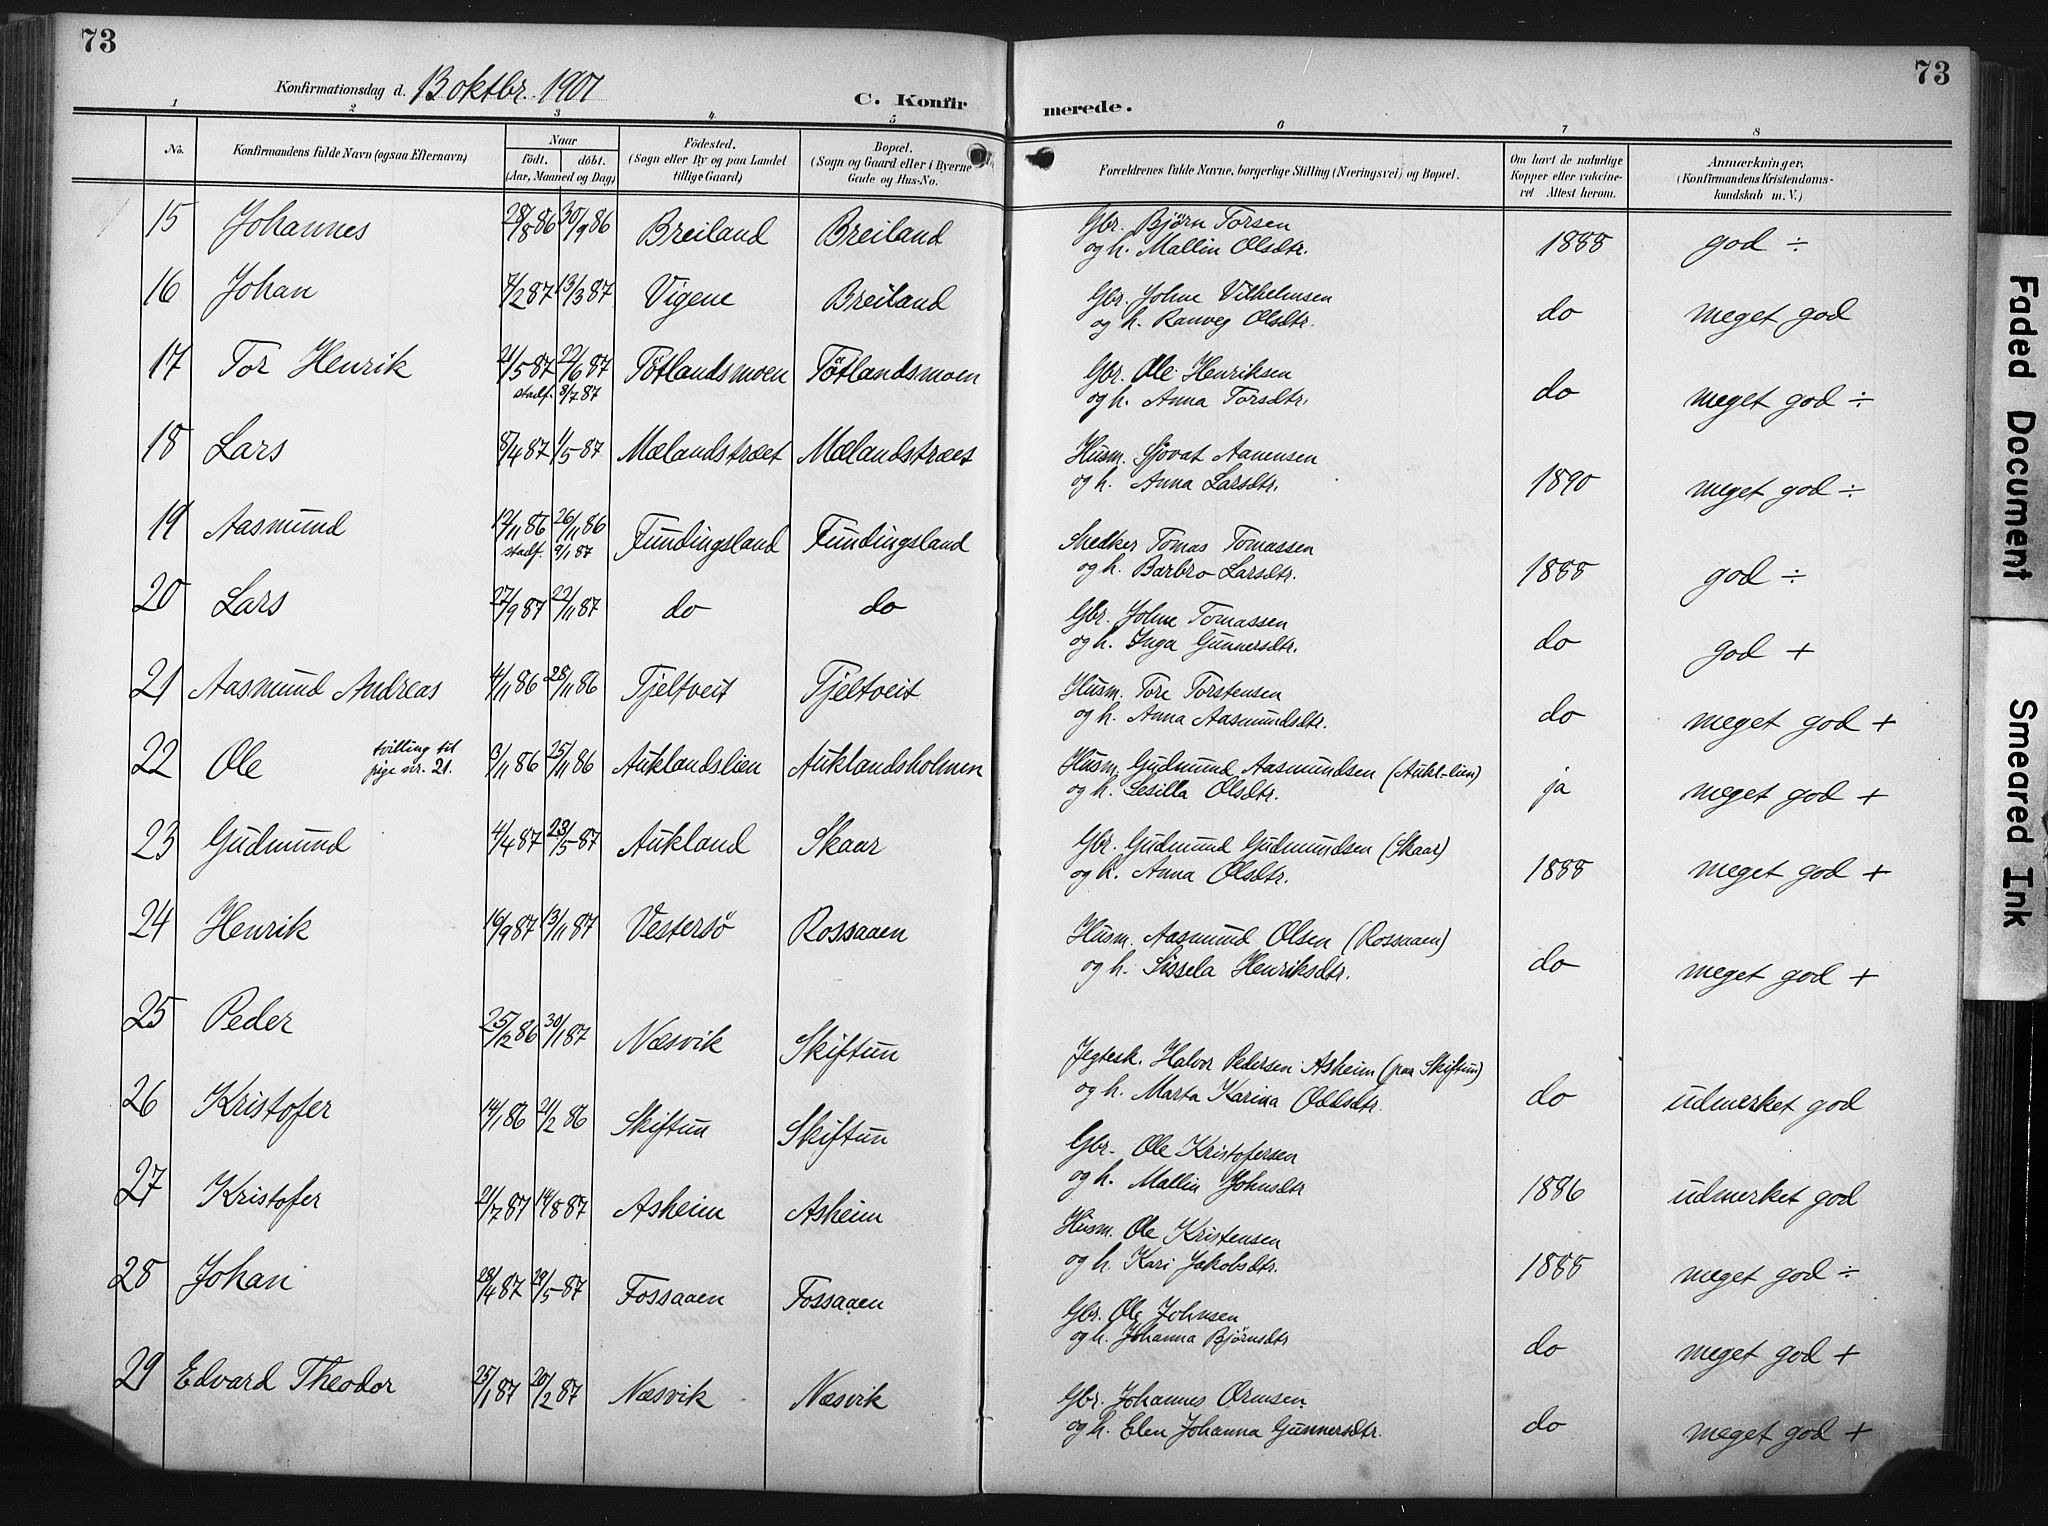 73
73
Konfirmationsdag d. 13 oktbr. 1901
C. Konfirmerede.
1 2 3 4 5 6 7 8
No. Konfirmandens fulde Navn (ogsaa Efternavn) Naar født. døbt. (Aar, Maaned og Dag) Födested. (Sogn eller By og paa Landet tillige Gaard) Bopæl. (Sogn og Gaard eller i Byerne Gade og Hus-No. Forældrenes fulde Navne, borgerlige Stilling (Næringsvei) og Bopæl. Om havt de naturlige Kopper eller vakcineret Attest herom. Anmærkninger. (Konfirmandens Kristendomskundskab m. V.)
15 Johannes 28/8 86 30/9 86 Breiland Breiland Gbr. Bjørn Torsen 1888 god ÷
og h. Mallin Olsdtr.
16 Johan 7/2 87 13/3 87 Vigene Breiland Gbr. Johne Vilhelmsen do meget god
og h. Ranveg Olsdtr.
17 Tor Henrik 21/5 87 22/6 87 Tötlandsmoen Tötlandsmoen Gbr. Ole Henriksen do meget god ÷
stadf. 8/7 87 og h. Anna Torsdtr.
18 Lars 8/4 87 1/5 87 Mælandstræet Mælandstræet Husm. Sjovat Aanensen 1890 meget god ÷
og h. Anna Larsdtr.
19 Aasmund 12/11 86 26/11 86 Fundingsland Fundingsland Snedker Tomas Tomassen 1888 god ÷
stadf. 9/1 87 og h. Barbro Larsdtr.
20 Lars 27/9 87 22/11 87 do do Gbr. Johne Tomassen do god +
og h. Inga Gunnersdtr.
21 Aasmund Andreas 4/11 86 28/11 86 Tjeltveit Tjeltveit Husm. Tore Torstensen do meget god +
og h. Anna Aasmundsdtr.
22 Ole tvilling til pige nr. 21. 3/11 86 25/11 86 Auklandslien Auklandsholmen Husm. Gudmund Aasmundsen (Aukl-lien) ja meget god +
og h. Sesilla Olsdtr.
23 Gudmund 4/4 87 23/5 87 Aukland Skaar Gbr. Gudmund Gudmundsen (Skaar) 1888 meget god +
og h. Anna Olsdtr.
24 Henrik 16/9 87 13/11 87 Vestersö Rossaaen Husm. Aasmund Olsen (Rossaaen) do meget god +
og h. Sissela Henriksdtr.
25 Peder 25/12 86 30/1 87 Næsvik Skiftun Jegtesk. Halvor Pedersen Asheim (paa Skiftun) do udmerket god
og h. Marta Karina Oddsdtr.
26 Kristofer 14/1 86 21/2 86 Skiftun Skiftun Gbr. Ole Kristofersen 1886 udmerket god
og h. Mallin Johnsdtr
27 Kristofer 21/7 87 14/8 87 Asheim Asheim Husm. Ole Kristensen 1888 meget god ÷
og h. Kari Jakobsdtr.
28 Johan 28/4 87 29/5 87 Fossaaen Fossaaen Gbr. Ole Johnsen do meget god +
og h. Johanna Bjørnsdtr
29 Edvard Theodor 25/1 87 20/2 87 Næsvik Næsvik Gbr. Johannes Ormsen do meget god +
og h. Elen Johanna Gunnersdtr.
Faded Document
Smeared Ink